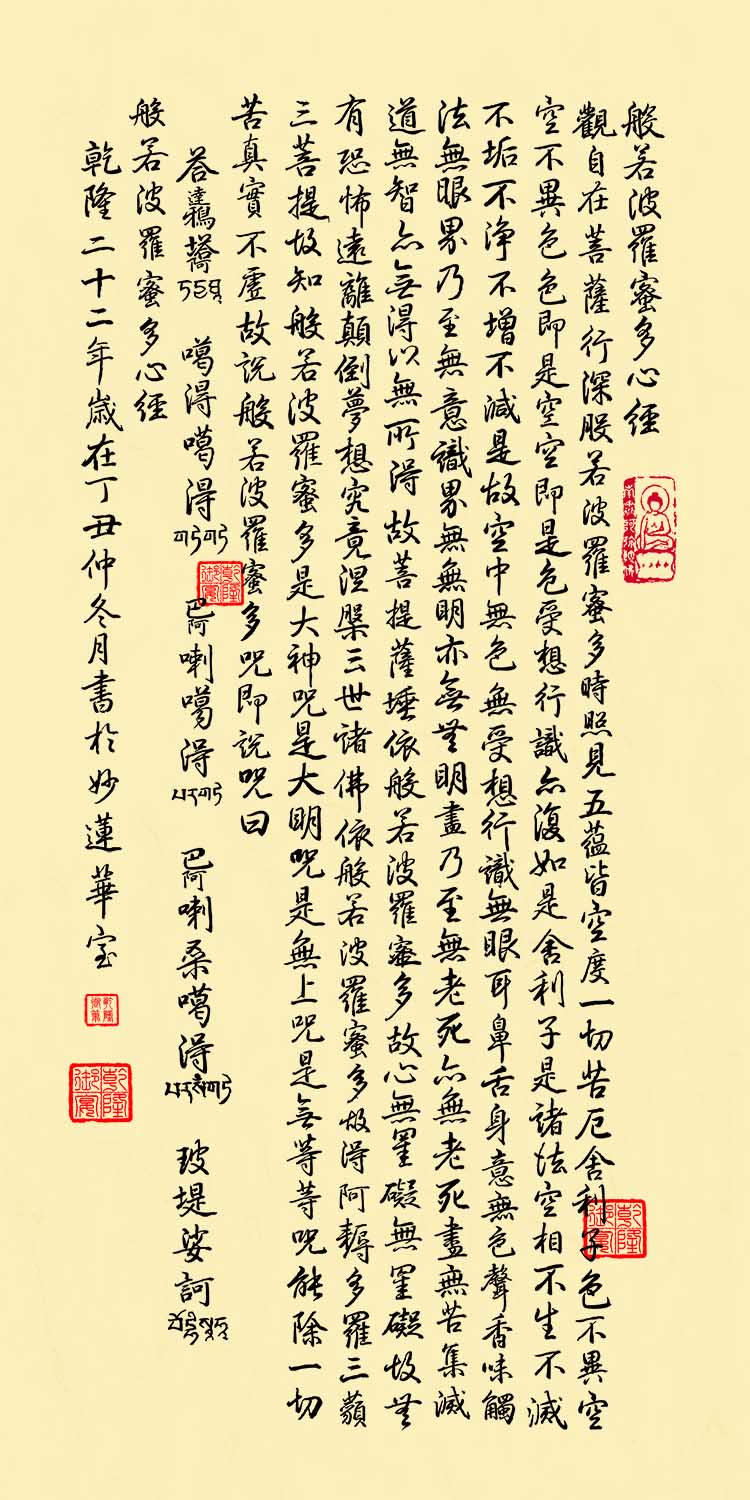 般若波羅蜜多心經
觀自在菩薩行深般若波羅蜜多時照見五蘊皆空度一切苦厄舍利子色不異空
空不異色色即是空空即是色受想行識亦復如是舍利子是諸法空相不生不滅
不垢不淨不增不減是故空中無色無受想行識無眼耳鼻舌身意無色聲香味觸
法無眼界乃至無意識界無無明亦無无明盡乃至無老死亦無老死盡無苦集滅
道無智亦無得以無所得故菩提薩埵依般若波羅蜜多故心無罣礙無罣礙故无
有恐怖遠離顛倒夢想究竟涅槃三世諸佛依般若波羅蜜多故得阿耨多羅三藐
三菩提故知般若波羅蜜多是大神咒是大明咒是無上咒是無等等咒能除一切
苦真實不虛故說般若波羅蜜多咒即說咒曰
答 噶得噶得 གཏེགཏེ 巴阿喇噶得 པརགཏེ 巴阿喇桑噶得 པརསཾགཏེ 玻堤娑訶
般若波羅蜜多心經
乾隆二十二年歲在丁丑仲冬月書於妙蓮華室
乾隆御筆
乾隆御覽